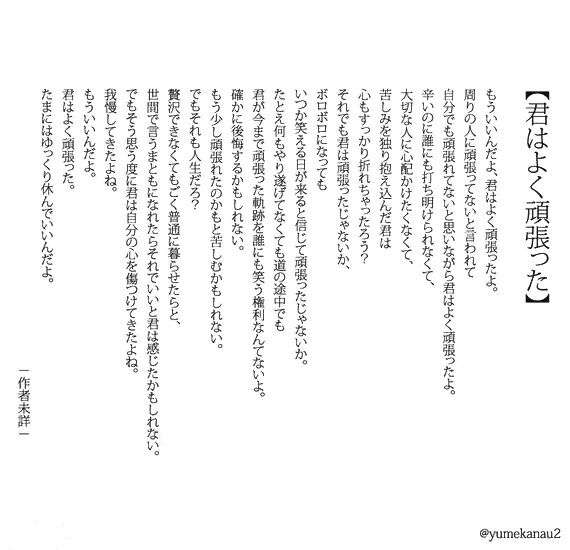 【君はよく頑張った】
もういいんだよ、君はよく頑張ったよ。
周りの人に頑張ってないと言われて
自分でも頑張れてないと思いながら君はよく頑張ったよ。
辛いのに誰にも打ち明けられなくて、
大切な人に心配かけたくなくて、
苦しみを独り抱え込んだ君は
心もすっかり折れちゃったろう？
それでも君は頑張ったじゃないか、
ボロボロになっても
いつか笑える日が来ると信じて頑張ったじゃないか。
たとえ何もやり遂げてなくても道の途中でも
君が今まで頑張った軌跡を誰にも笑う権利なんてないよ。
確かに後悔するかもしれない。
もう少し頑張れたのかもと苦しむかもしれない。
でもそれも人生だろ？
贅沢できなくてもごく普通に暮らせたらと、
世間で言うまともになれたらそれでいいと君は感じたかもしれない。
でもそう思う度に君は自分の心を傷つけてきたよね。
我慢してきたよね。
もういいんだよ。
君はよく頑張った。
たまにはゆっくり休んでいいんだよ。
－作者未詳－
@yumekanau2